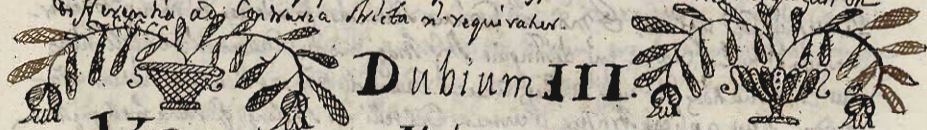 differentia ad Contraria stricta n. requiratur.
Dubium III.